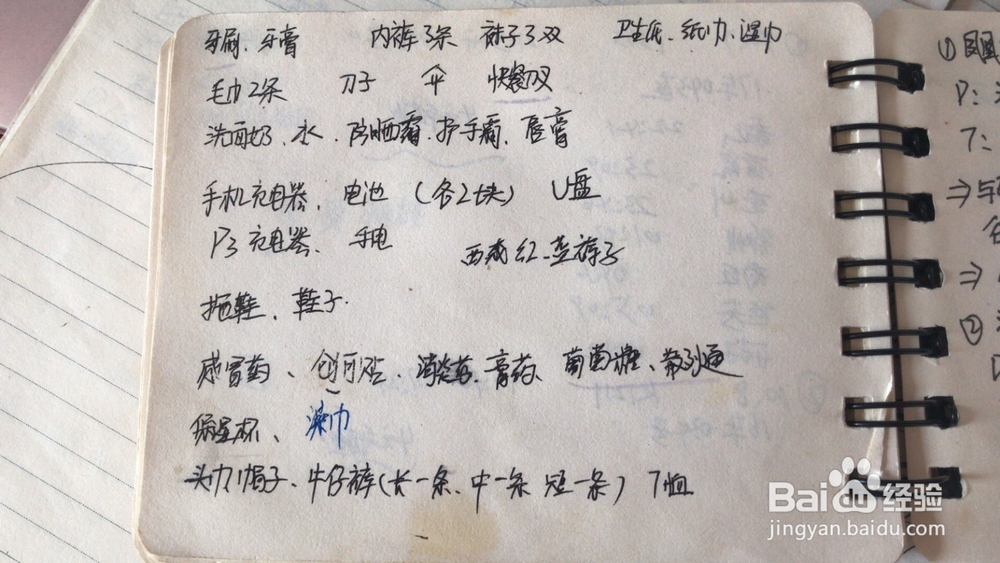 牙刷、牙膏 内裤3条 袜子3双 卫生纸、纸巾、湿巾
毛巾2条 刀子 伞
洗面奶、水、防晒霜、护手霜、唇膏
手机充电器、电池（各2块） U盘
P3充电器、手电
裤子
拖鞋、鞋子.
感冒药、创可贴、消炎药、膏药、葡萄糖、散列通
保温杯、湿巾
头巾帽子、牛仔裤(长一条、中一条 短一条) T恤
① 
P:
T:
⇒
⇒
②
Baidu经验
jingyan.baidu.com